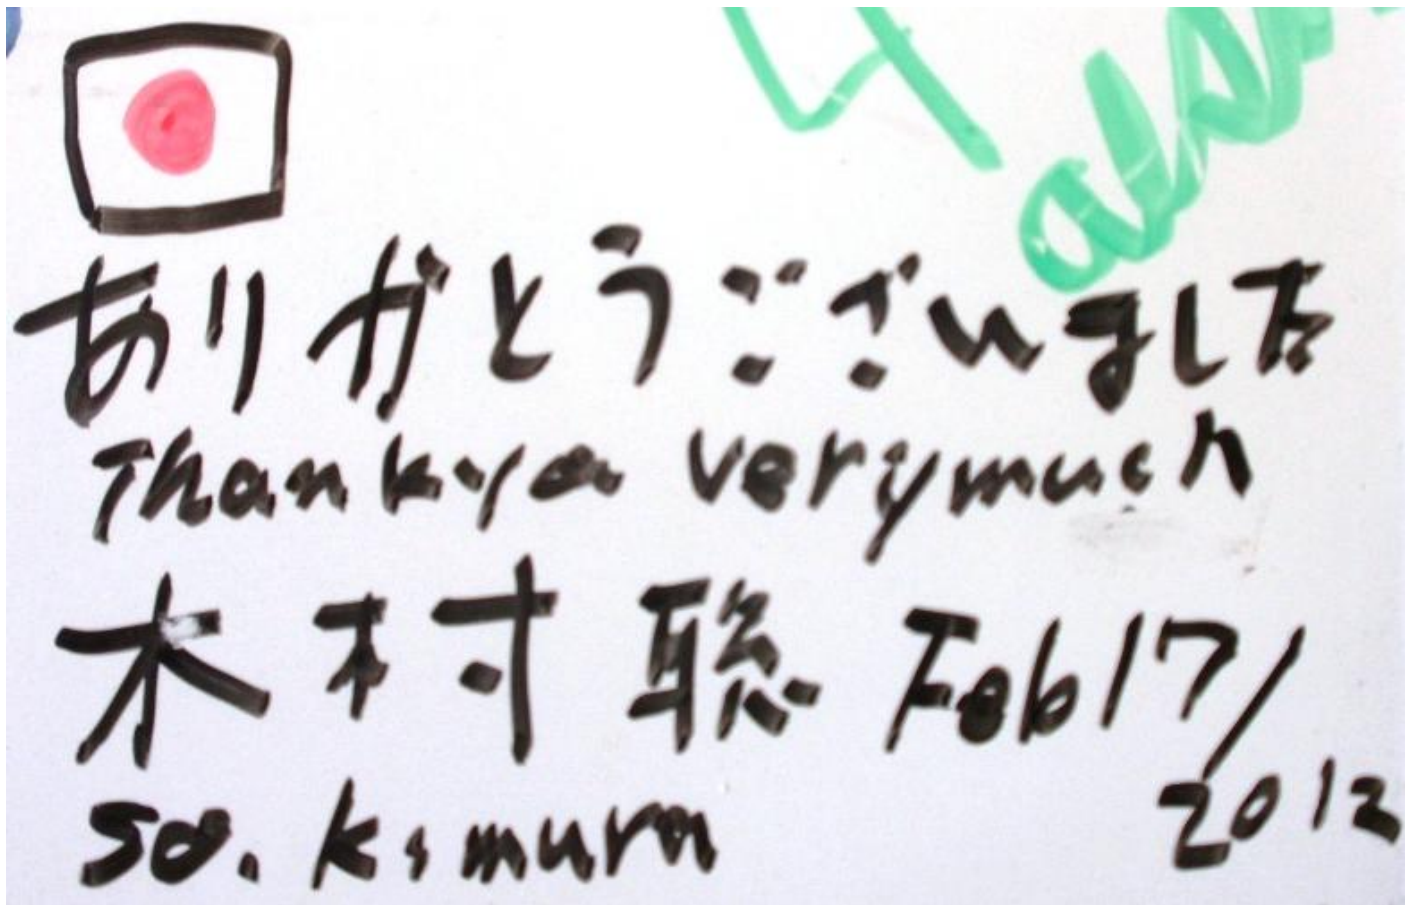 ありがとうございました
Thank ya very much
木村 聡 Feb 17/
2012
So. Kimura